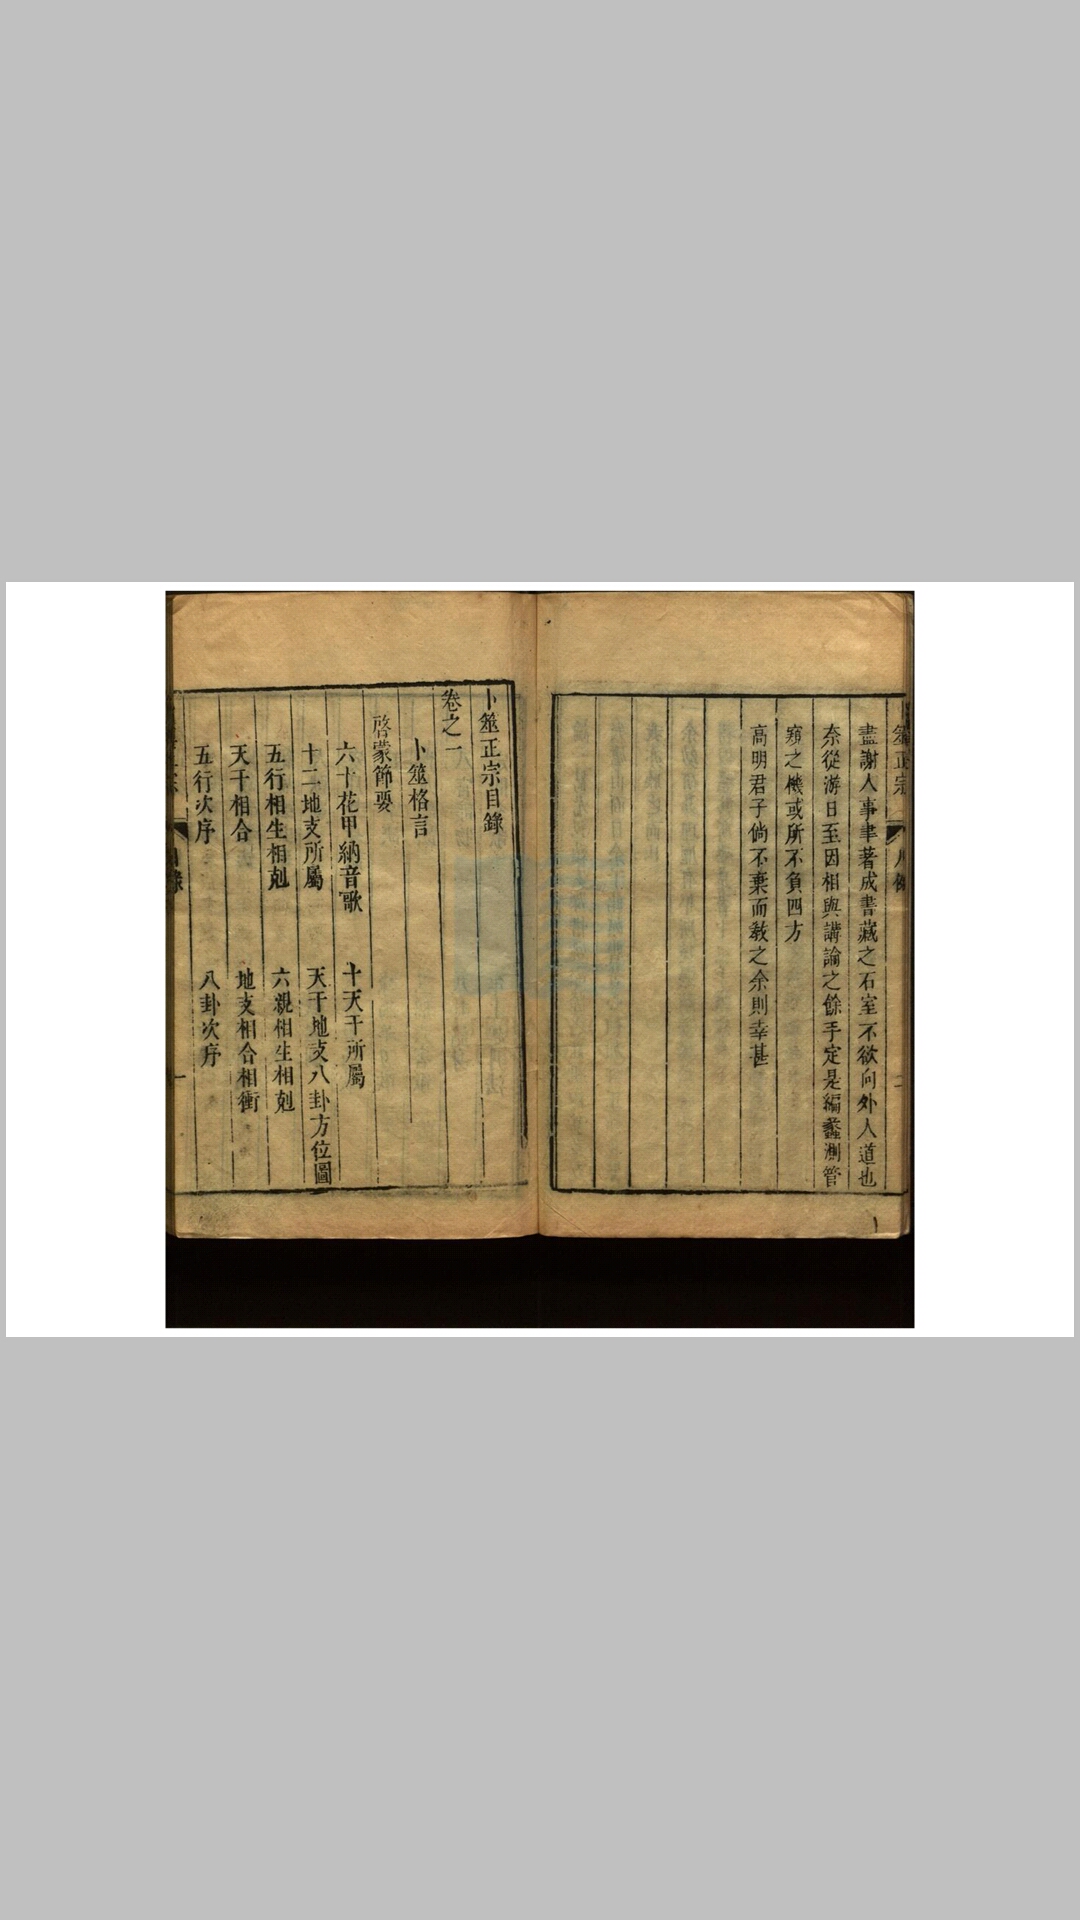 盡謝人事聿著成書藏之石室不欲向外人道也
奈從游日至因相與講論之餘手定是編蠡測管
窺之機或所不負四方
高明君子倘不棄而教之余則幸甚
卜筮正宗目錄
卷之一
卜筮格言
啓蒙節要
六十花甲納音歌 十天干所屬
十二地支所屬 天干地支八卦方位圖
五行相生相剋 六親相生相剋
天干相合 地支相合相衝
五行次序 八卦次序
一